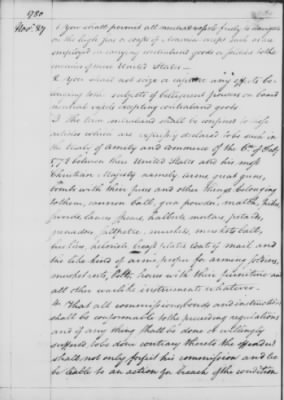 1780
Nov.r 27
1. You shall permit all neutral vessels freely to navigate
on the high seas or coasts of America except such as are
employed in carrying contraband goods or soldiers to the
enemies of these United States —
2. You shall not seize or capture any effects be
longing to the subjects of belligerent powers on board
neutral vessels excepting contraband goods
3. The term contraband shall be confined to those
articles which are expressly declared to be such in
the treaty of amity and commerce of the 6th of Feby
1778 between these United States and his most
Christian Majesty namely arms, great guns,
bombs with their fuses and other things belonging
to them, cannon ball, gun powder, match, pikes
swords, lances, spears, halberts mortars, petards,
granadoes, saltpetre, muskets, musket ball,
bucklers, helmets breast plates coats of mail and
the like kinds of arms, proper for arming soldiers,
musket rests, belts, horses with their furniture and
all other warlike instruments whatever.
4. That all commissions bonds and instructions
shall be conformable to the preceding regulations
and if any thing shall be done or willingly
suffered to be done contrary thereto the offender
shall not only forfeit his commission and be
liable to an action for breach of the condition